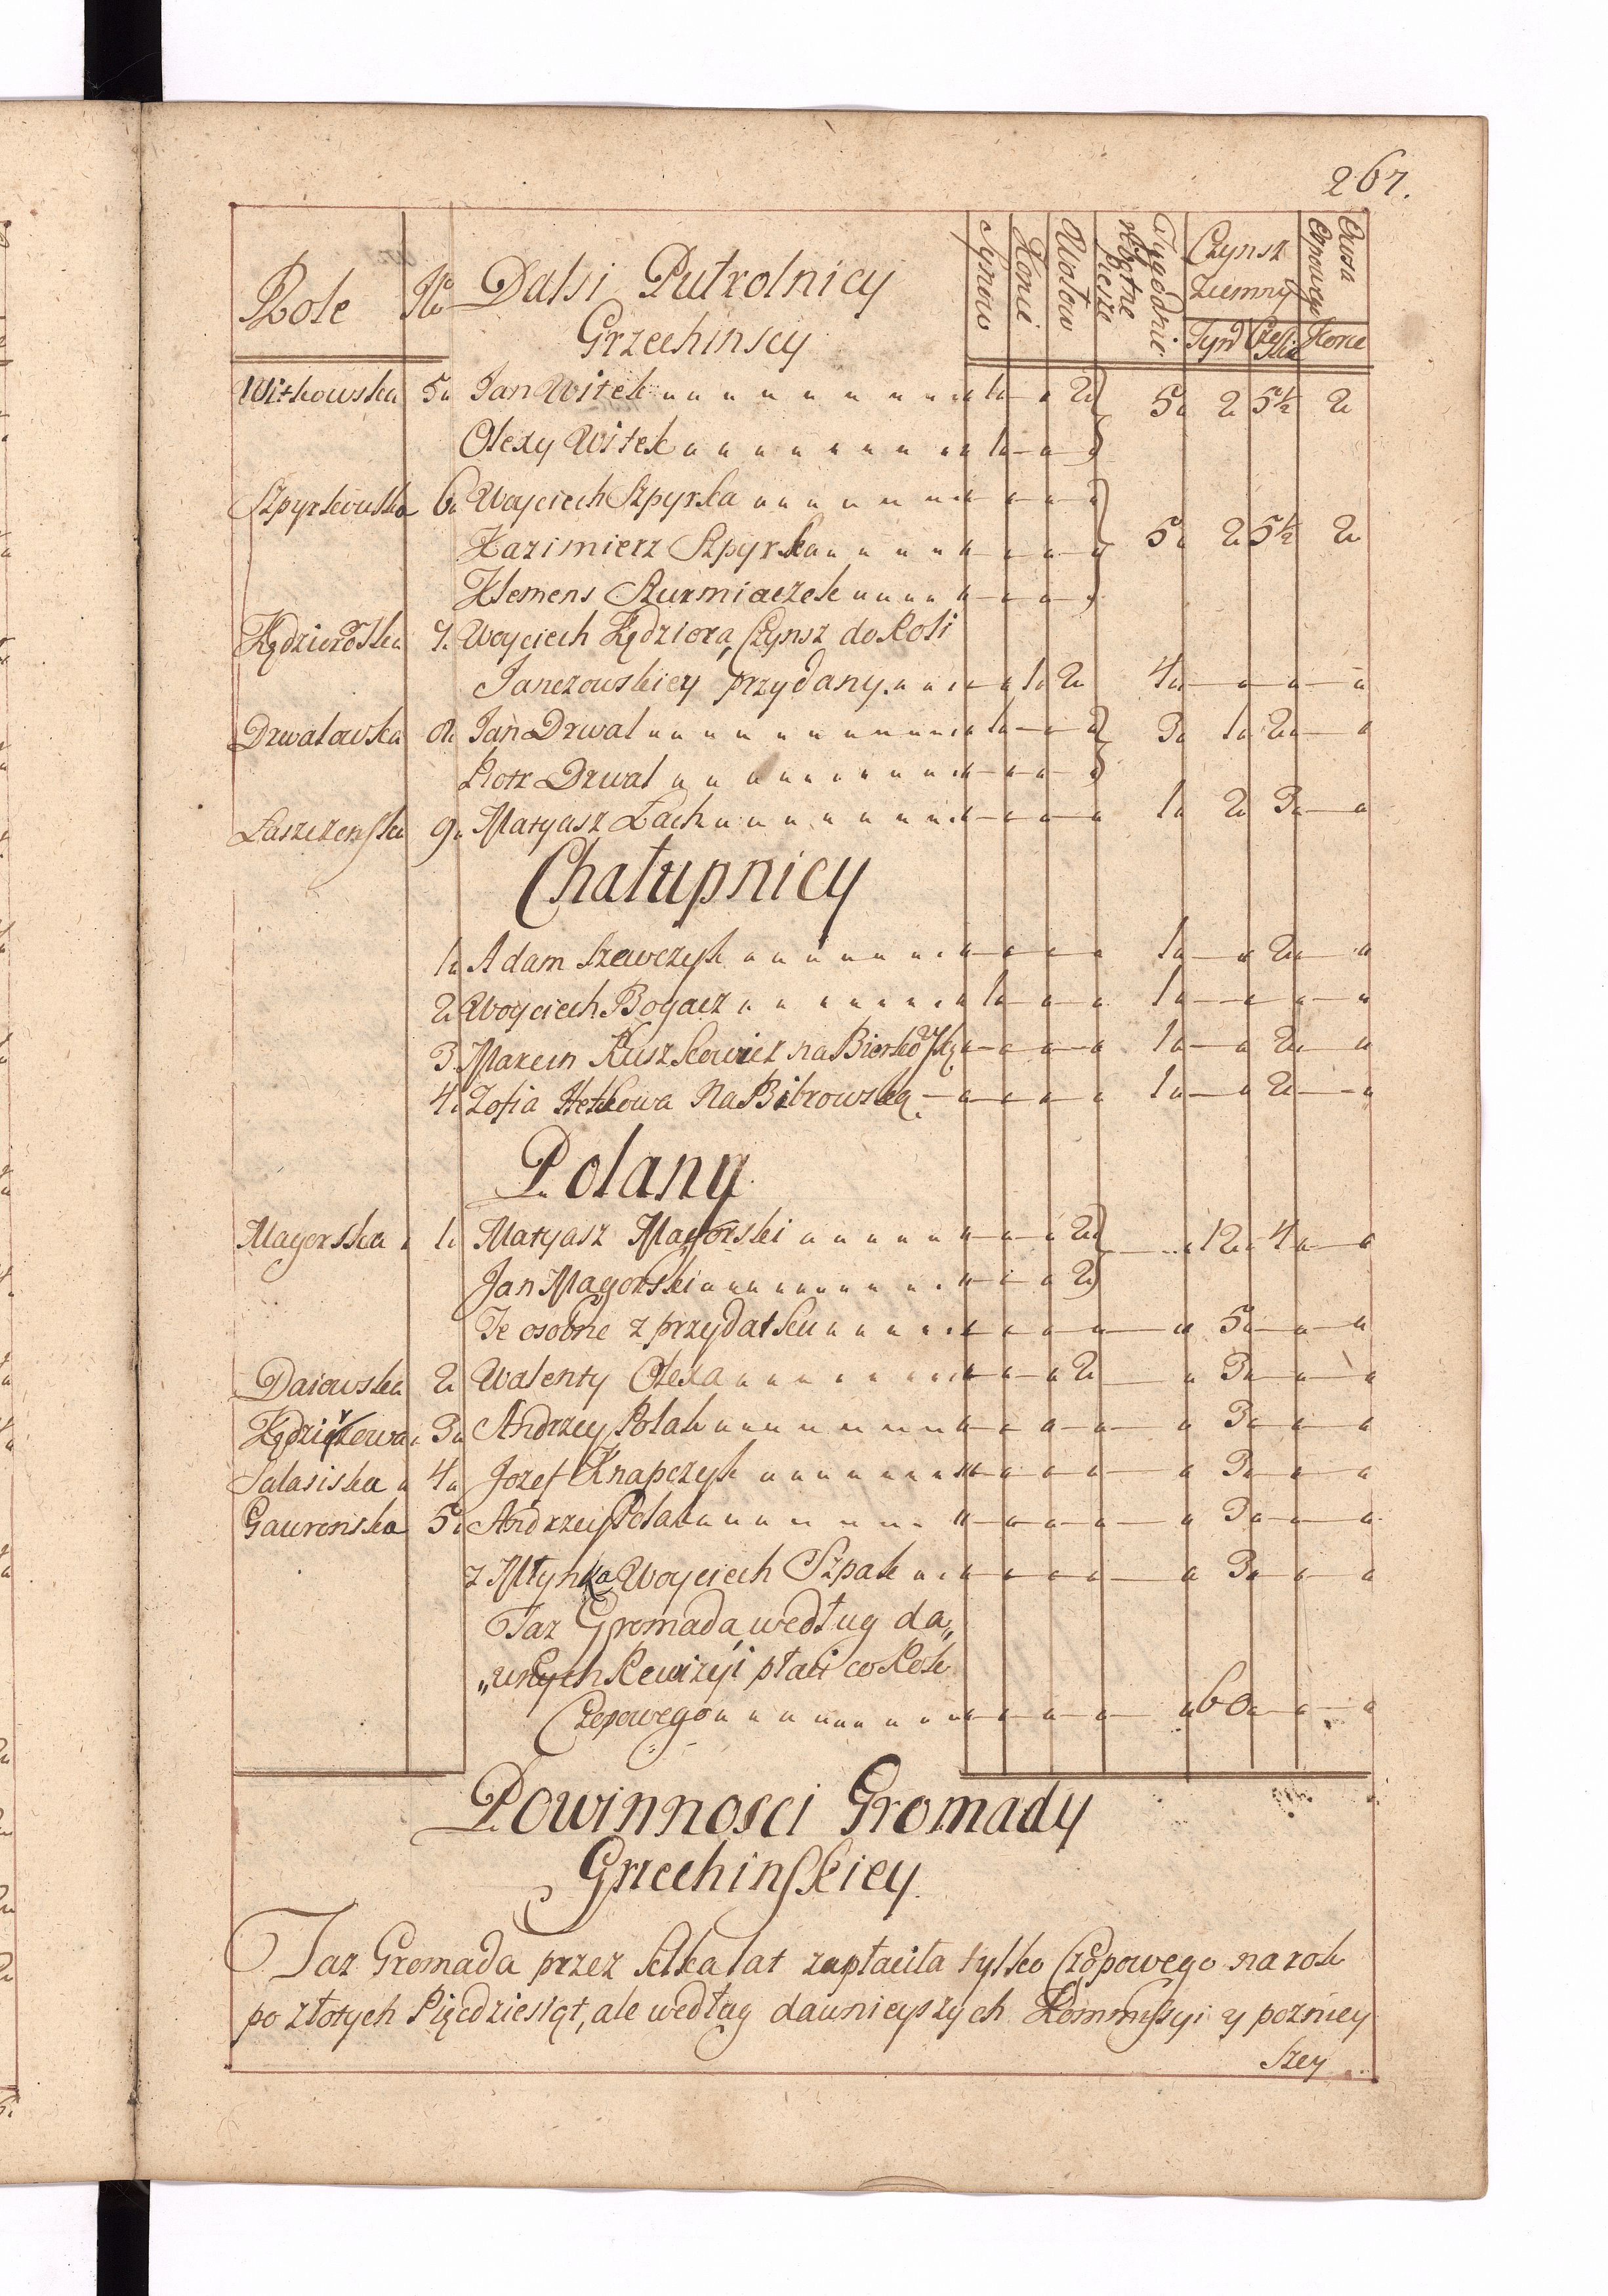 267.
Role No Dalsi Pułrolnicy Synow Konie Wołow piesze robotne Tygodnie Czynsz Owsa
Grzechinscy ziemny Czpowego
Tynf Czeskie Korce
Witkowska 5. Jan Witek 1 2 5 2 5½ 2
Olexy Witek 1
Szpyrkowska 6. Woyciech Szpyrka
Kazimierz Szpyrka 5 2 5½ 2
Klemens Szurmiaczek
Kędziorska 7. Woyciech Kędziora, Czynsz do Roli
Janczowskiey przydany 1 2 4
Drwalowska 8. Jan Drwal 1 3 1 2
Piotr Drwal
Laszczenska 9. Matyasz Łach 1 2 3
Chałupnicy
1. Adam Szewczyk 1 2
2. Woyciech Bogacz 1 1
3. Marcin Kuszkowicz na 1 2
4. Zofia Hetkowa Na Bibrowską 1 2
Polany
Magorska 1. Matyasz Magorski 2 12 4
Jan Magorski 2
Te osobne z przydatku 5
Daiowska 2 Walenty Olexa 2 3
3. Andrzey Polak 3
Salasiska 4. Jozef Knapczyk 3
Gauronska 5. Andrzey Polak 3
z Młynka Woyciech Szpak 3
Taz Gromada według da„
„wnych Rewizyi płaci co Rok
Czopowego 60
Powinnosci Gromady
Grzechinskiey
Taz Gromada przez kilka lat zapłaciła tylko Czopowego na rok
po złotych Pięcdziesiąt, ale według dawnieyszych Kommissyi y pozniey
szey